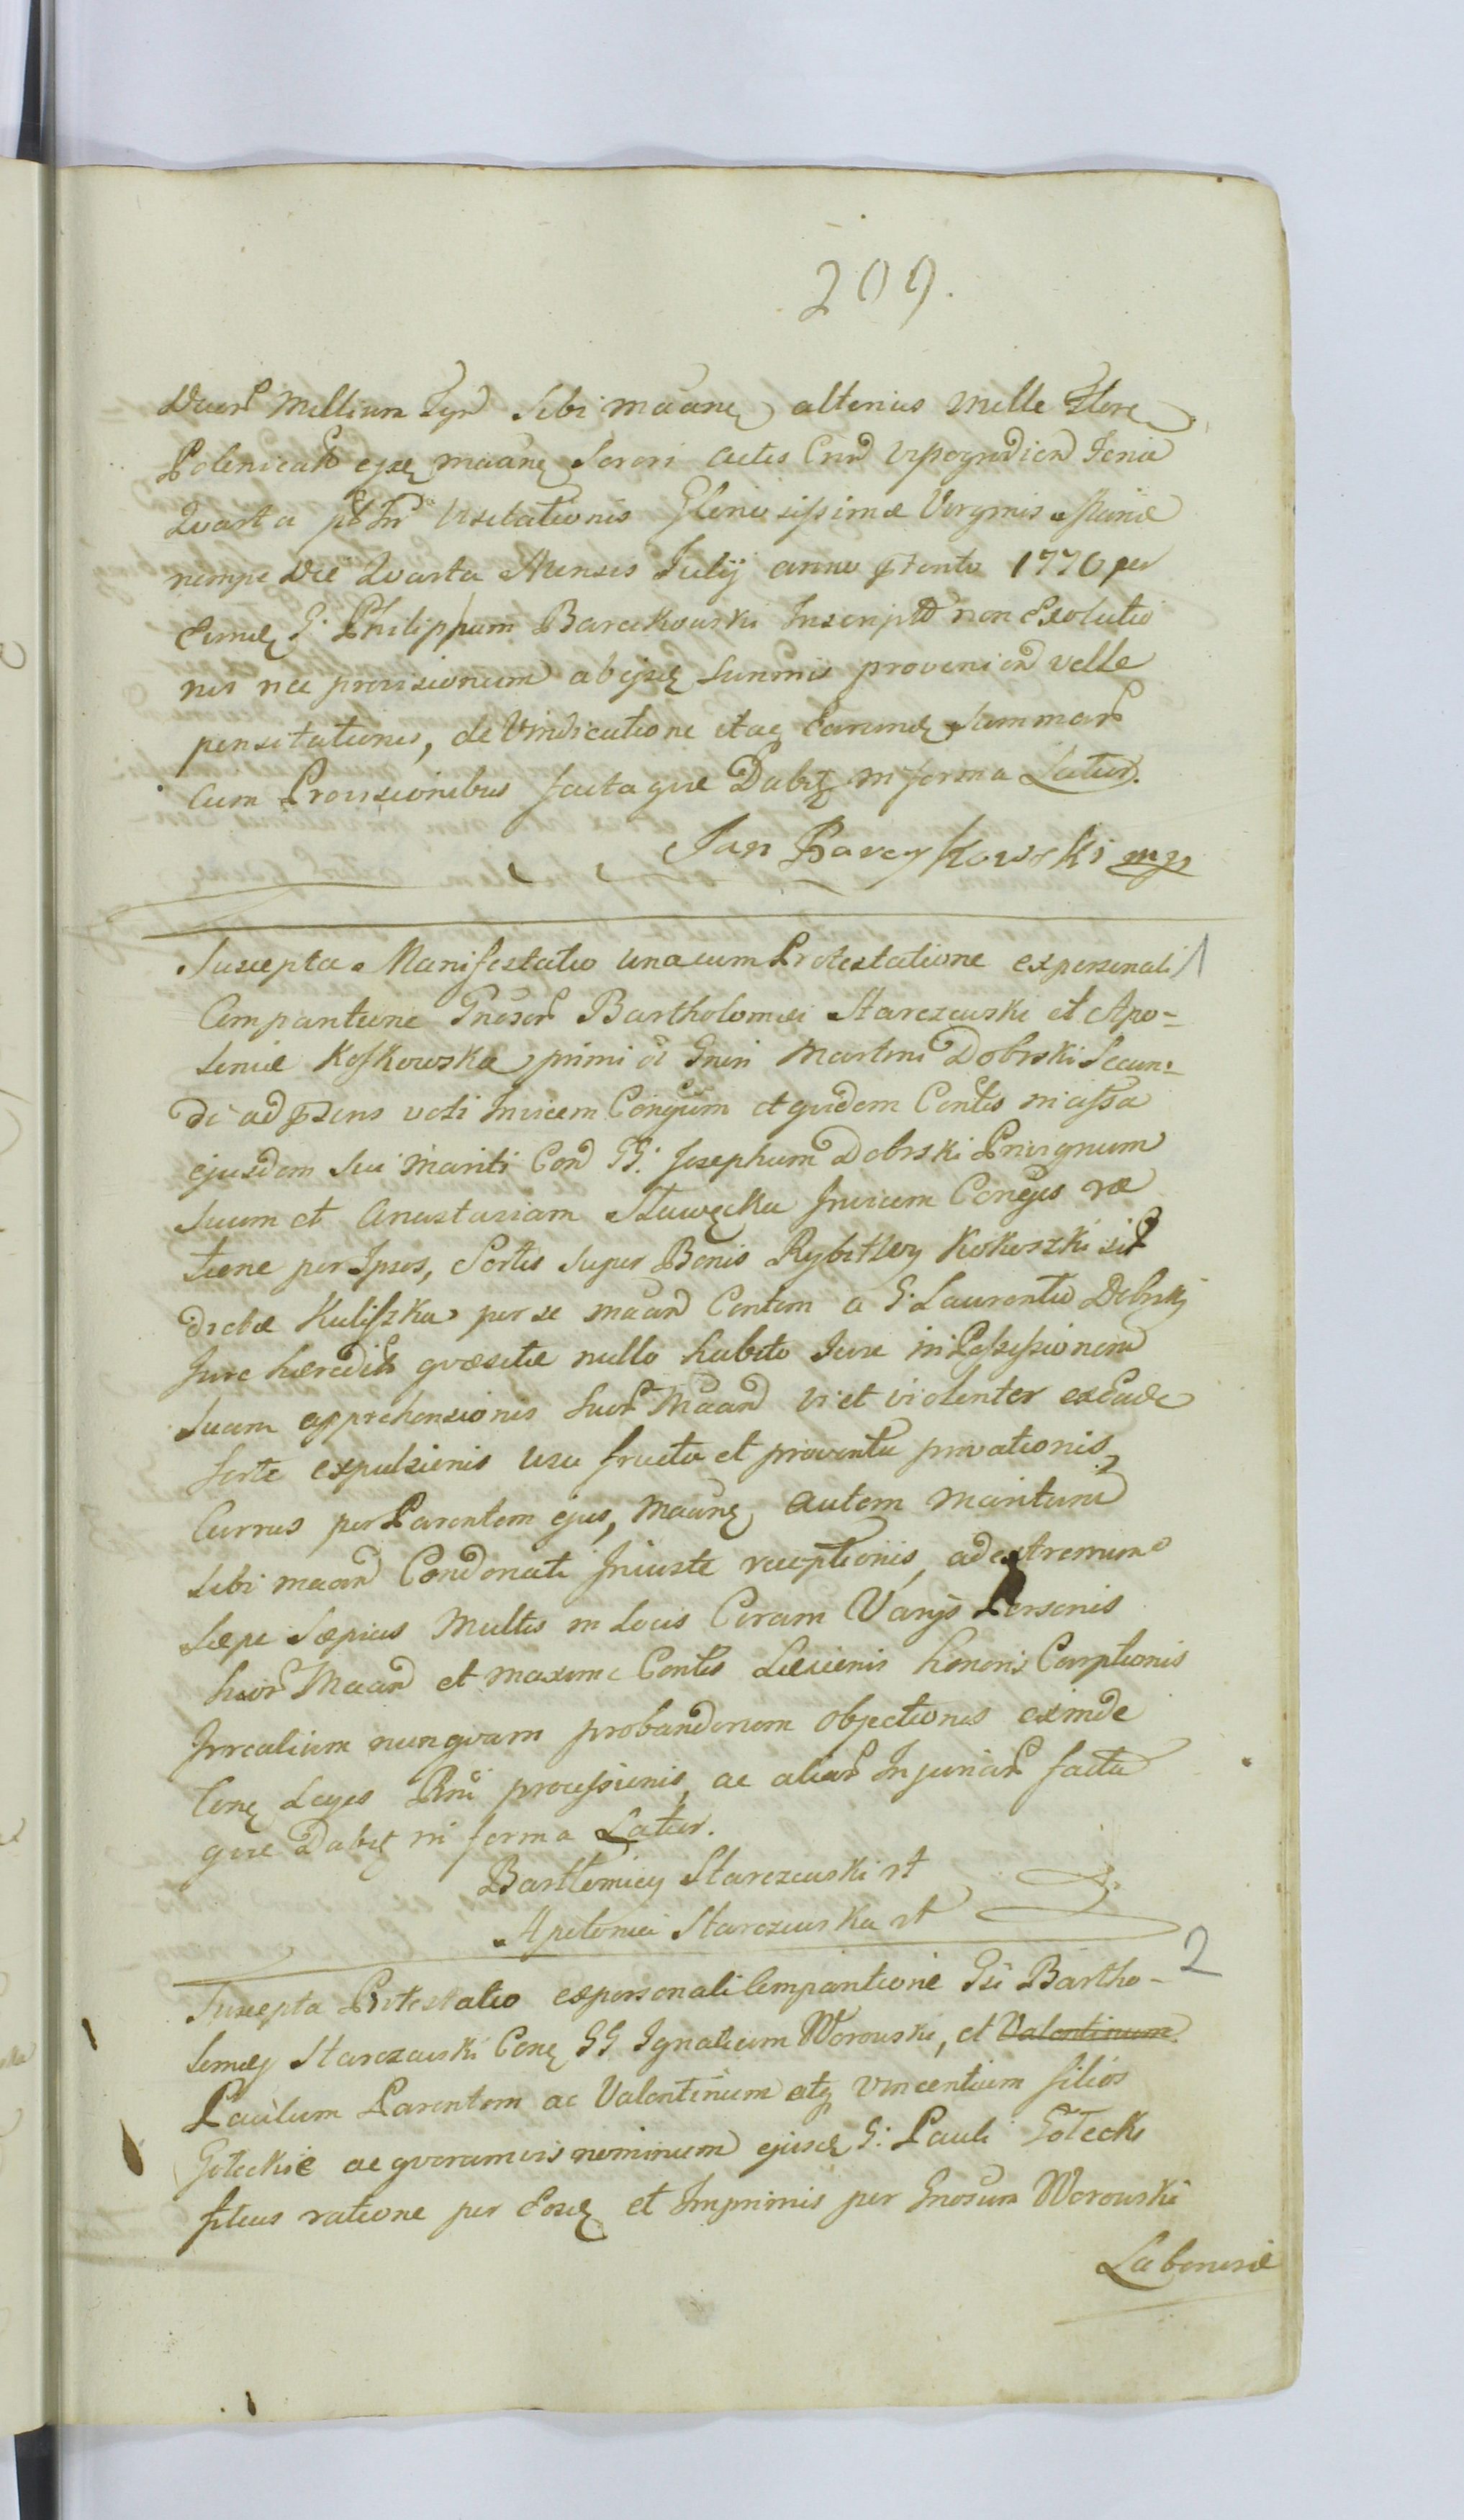 209.
Duorꝝ Millium Tyꝝ sibi maane, alterius mille flore
Polonicaꝝ ejse maane Sorori actis Crnd
Quarta pt Fr Visitationis Gloriosissimæ Virginis Mariæ
nempe Die Quarta Mensis Julij anno 1770 per
eund G: Philippum Barcikowski Inscript non Exolutio
nis nec provisionum ab ejse Summis provenien velle
pensitationis, de Vindicatione itaq earund Summarꝝ
cum Provisionibus factaque Dabit in forma Latior.
Jan Barcykowski mp
Suscepta Manifestatio unacum Protestatione ex personali 1
Comparitione Gnosorꝝ Bartholomæi Starczewski et Apo-
loniæ Koskowska primi et Gnsi Martini Dobrski Secun-
di ad psens voti Invicem Conjgum et quidem Contis in assa
ejusdem sui mariti Cond GG: Josephum Dobrski Privignum
suum et Anastasiam Sławęcka Invicem Conjges ra
tione per Ipsos, Sortis super Bonis Rybitwy Kokoszki sit
dictæ Kuliszka per se maand Contem a G: Laurentio Dobrski
Jure hæredit quæsitæ nullo habito Jure in Possessionem
suam apprehensionis Suorꝝ Maand vi et violenter ex Eade
sorte expulsionis usu fructu et proventu privationis,
Currus per Parentem ejus, Maane autem maritum
sibi maand Condonati Injuste receptionis, ad extremum
Sæpe Sæpius Multis in Locis Coram Varijs Personis
horꝝ Maand et maxime Contis Læsionis honoris Carptionis
Irrealium nunquam probandorum objectiones exinde
Cone Leges Rni processionis, ac aliarꝝ Injuriarꝝ facta
que Dabit in forma Latior.
Bartłomiey Starczewski
Apolonia Starczewska
Suscepta Protestatio ex personali Comparitione Gsi Bartho- 2
lomej Starczewski Cone GG Ignatium Worowski, et Valentinum
Paulum Parentem ac Valentinum atq Vincentium filios
Goteckie ac quorumvis nominum ejusd G: Pauli Gotecki
filios ratione per Eosd et Imprimis per Gnosum Worowski
Laboriosæ